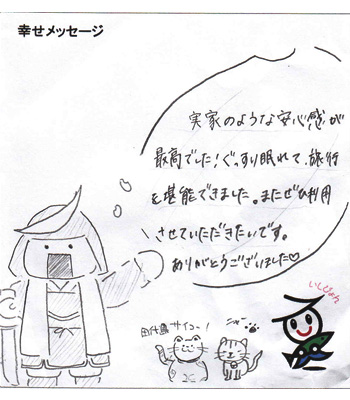 幸せメッセージ
実家のような安心感が
最高でした!ぐっすり眠れて、旅行
を堪能できました。またぜひ利用
させていただきたいです。
ありがとうございました♡
いしぴょん
田代島サイコー!